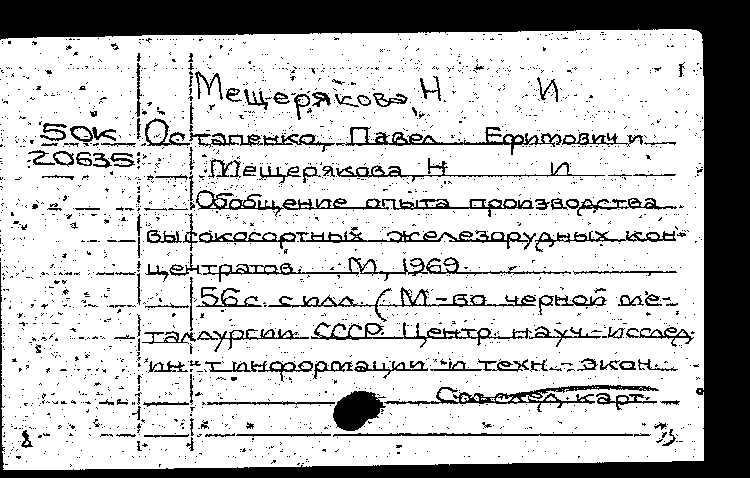 Мещерякова, Н И
50К Остапенко, Павел Ефимович и
20635 Мещерякова, Н И
Обобщение опыта производства
высокосортных железорудных кон-
центратов. М, 1969.
56 с. с илл. (М-во черной ме-
таллургии СССР. Центр. науч.-исслед.
ин-т информации и техн.-экон.
См. след. карт.